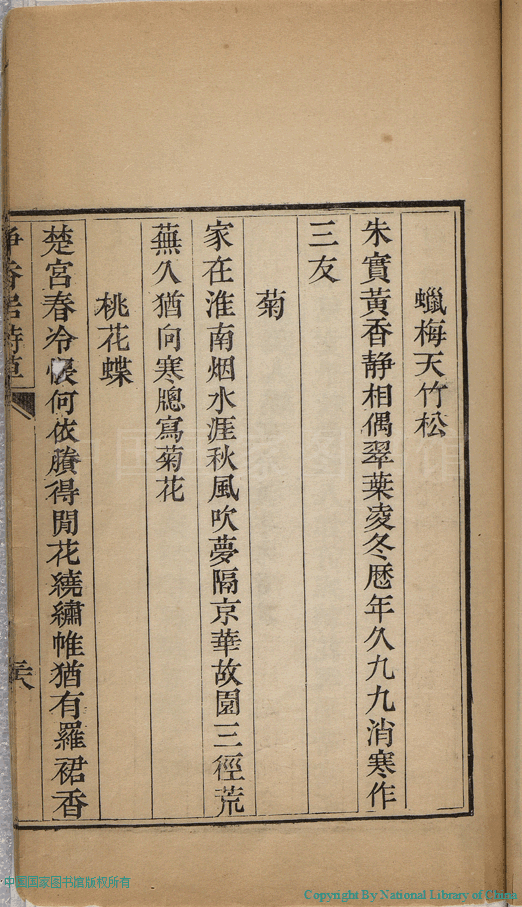 蠟梅天竹松
朱實黃香静相偶翠葉凌冬歴年久九九消寒作
三友
菊
家在淮南烟水涯秋風吹夢隔京華故園三徑荒
蕪久猶向寒牕寫菊花
桃花蝶
楚宮春冷悵何依賸得閒花繞繡帷猶有羅裙香
香居詩草
中国国家图书馆
中国国家图书馆版权所有
Copyright By National Library of China